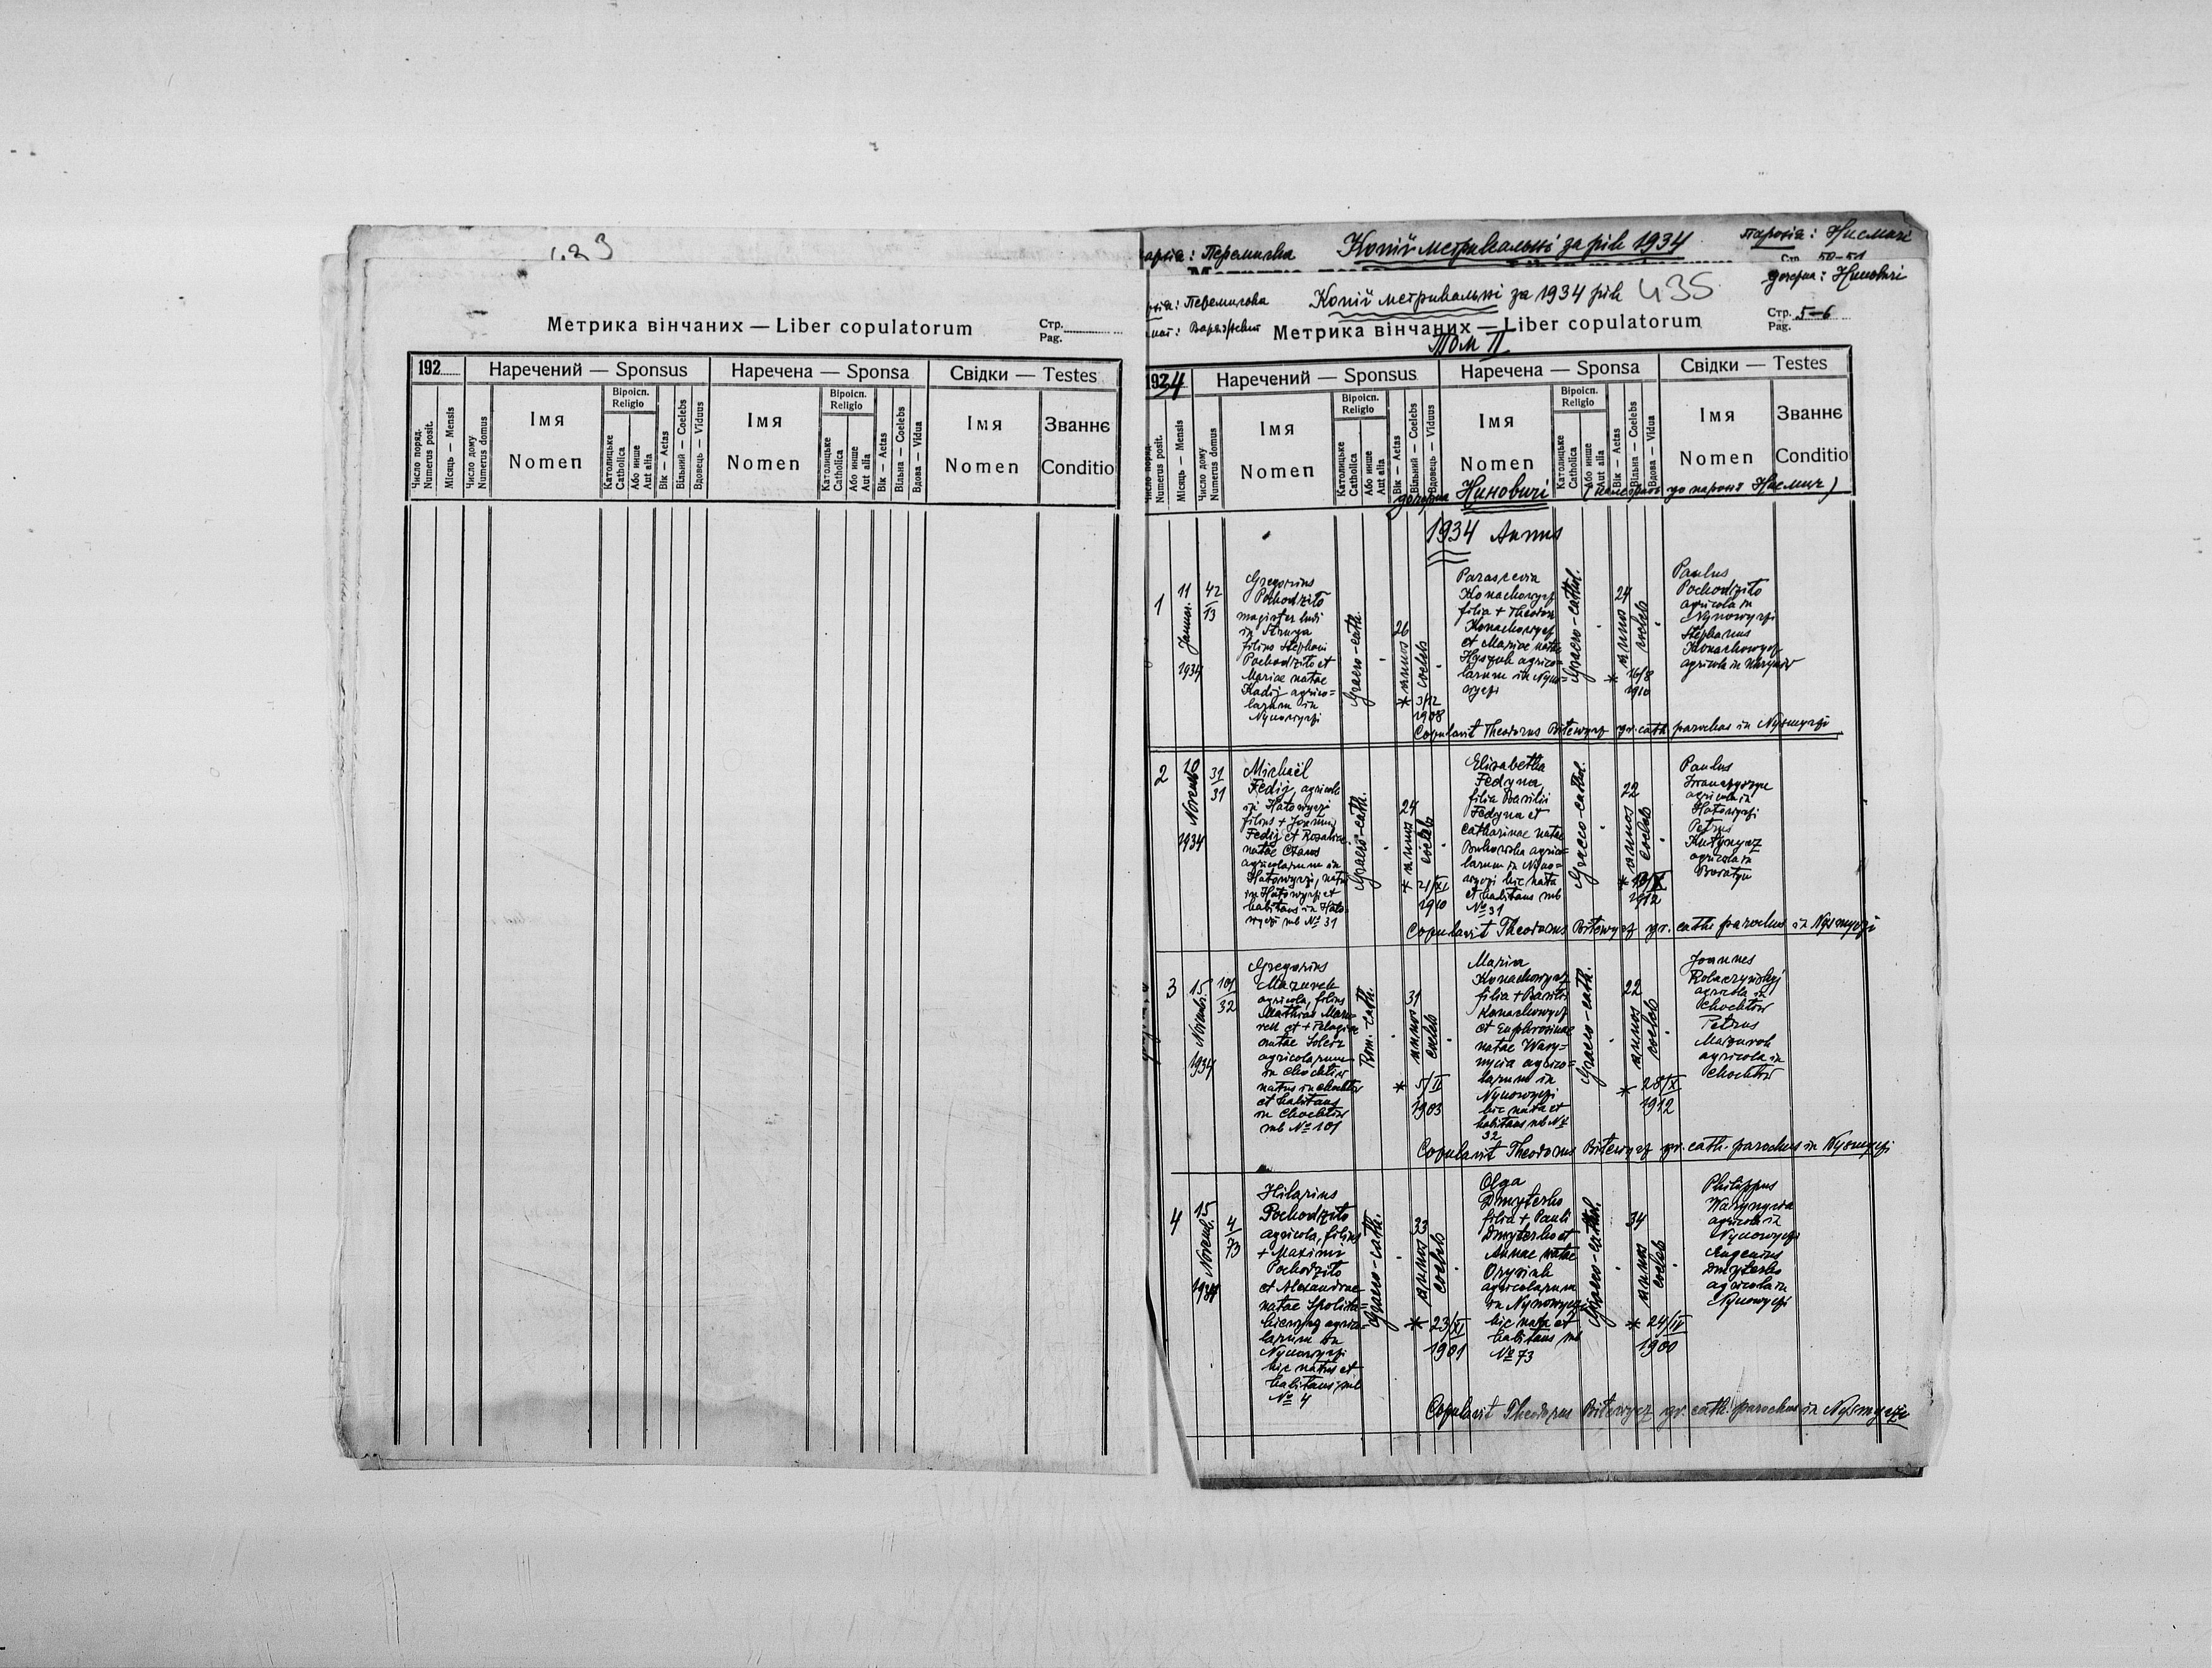 433
Метрика вінчаних — Liber copulatorum
Стр.
Pag.
192
Наречений — Sponsus
Наречена — Sponsa
Свідки — Testes
Число поряд.
Numerus posit.
Місяць — Mensis
Число дому
Numerus domus
Імя
Nomen
Віроісп.
Religio
Католицьке
Catholica
Або инше
Aut alia
Вік — Aetas
Вільний — Coelebs
Вдовець — Viduus
Імя
Nomen
Віроісп.
Religio
Католицьке
Catholica
Або инше
Aut alia
Вік — Aetas
Вільна — Coelebs
Вдова — Vidua
Імя
Nomen
Званнє
Conditio
Перемиська
Копії метрикальні за рік 1934
Парохія: Нисмичі
Стр. 50-51
Копії метрикальні за 1934 рік
435
дочерна: Ниновичі
Метрика вінчаних — Liber copulatorum
Стр.
Pag. 5-6
Том II
1934
Наречений — Sponsus
Наречена — Sponsa
Свідки — Testes
Число поряд.
Numerus posit.
Місяць — Mensis
Число дому
Numerus domus
Імя
Nomen
Віроісп.
Religio
Католицьке
Catholica
Або инше
Aut alia
Вік — Aetas
Вільний — Coelebs
Вдовець — Viduus
Імя
Nomen
Віроісп.
Religio
Католицьке
Catholica
Або инше
Aut alia
Вік — Aetas
Вільна — Coelebs
Вдова — Vidua
Імя
Nomen
Званнє
Conditio
дочерна Ниновичі (належить до парохії Нисмичі)
1934 Annus
1
11
Januar.
1934
42
13
Gregorius
Pochodzito
magister ludi
in
filius Stephani
Pochodzito et
Mariae natae
Hadij agrico=
larum in
Nynowyczi
Graeco-cath.
26
annos
* 3/12
1908
coeleb
Parascevia
Konachowycz
filia + Theodori
Konachowycz
et Mariae natae
agrico=
larum in Nyno=
wyczi
Graeco-cathol.
24
annos
* 16/8
1910
coeleb
Paulus
Pochodzito
agricola in
Nynowyczi
Stephanus
Konachowycz
agricola in
Copulavit Theodorus Bitewycz gr. cath. parochus in Nysmyczi
2
10
Novemb
1934
31
31
Michaël
Fedij, agricola
in Hatowyczi
filius + Joannis
Fedij et Rosaliae
natae
agricolarum in
Hatowyczi, natus
in Hatowyczi et
habitans in Hato=
wyczi sub № 31
Graeco-cath.
24
annos
* 21/XI
1910
coeleb
Elisabetha
Fedyna
filia Basilii
Fedyna et
Catharinae natae
agrico=
larum in Nyno=
wyczi hic nata
et habitans sub
№ 31
Graeco-cathol.
22
annos
* 13/X
1912
coeleb
Paulus
agricola in
Hatowyczi
Petrus
agricola in
Boratyn
Copulavit Theodorus Bitewycz gr. cath. parochus in Nysmyczi
3
15
Novembr.
1934
101
32
Gregorius
Mazurek
agricola, filius
Mathiae Mazu=
rek et + Pelagiae
natae
agricolarum
in Chochłów
natus in Chochłów
et habitans
in Chochłów
sub № 101
Rom.-cath.
31
annos
* 5/II
1903
coeleb
Maria
Konachowycz
filia + Basilii
Konachowycz
et Euphrosinae
natae Wary=
nycia agrico=
larum in
Nynowyczi
hic nata et
habitans sub №
32
Graeco-cath.
22
annos
* 28/X
1912
coeleb
Joannes
agricola in
Chochłów
Petrus
Mazurek
agricola in
Chochłów
Copulavit Theodorus Bitewycz gr. cath. parochus in Nysmyczi
4
15
Novemb.
1934
4
73
Hilarius
Pochodzito
agricola, filius
+ Maximi
Pochodzito
et Alexandrae
natae
agrico=
larum in
Nynowyczi
hic natus et
habitans sub
№ 4
Graeco-cath.
33
annos
* 23/XI
1901
coeleb
Olga
Dmyterko
filia + Pauli
Dmyterko et
Annae natae
agricolarum
in Nynowyczi
hic nata et
habitans sub
№ 73
Graeco-cathol.
34
annos
* 24/IV
1900
coeleb
Philippus
Warynycia
agricola in
Nynowyczi
Eugenius
Dmyterko
agricola in
Nynowyczi
Copulavit Theodorus Bitewycz gr. cath. parochus in Nysmyczi